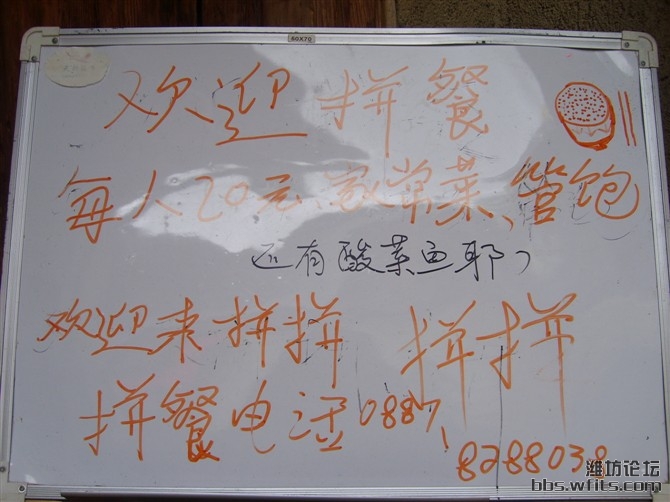 60X70
欢迎拼餐
每人20元、家常菜、管饱
还有酸菜鱼耶
欢迎来拼拼 拼拼
拼餐电话0887
8288038
潍坊论坛
bbs.wfits.com